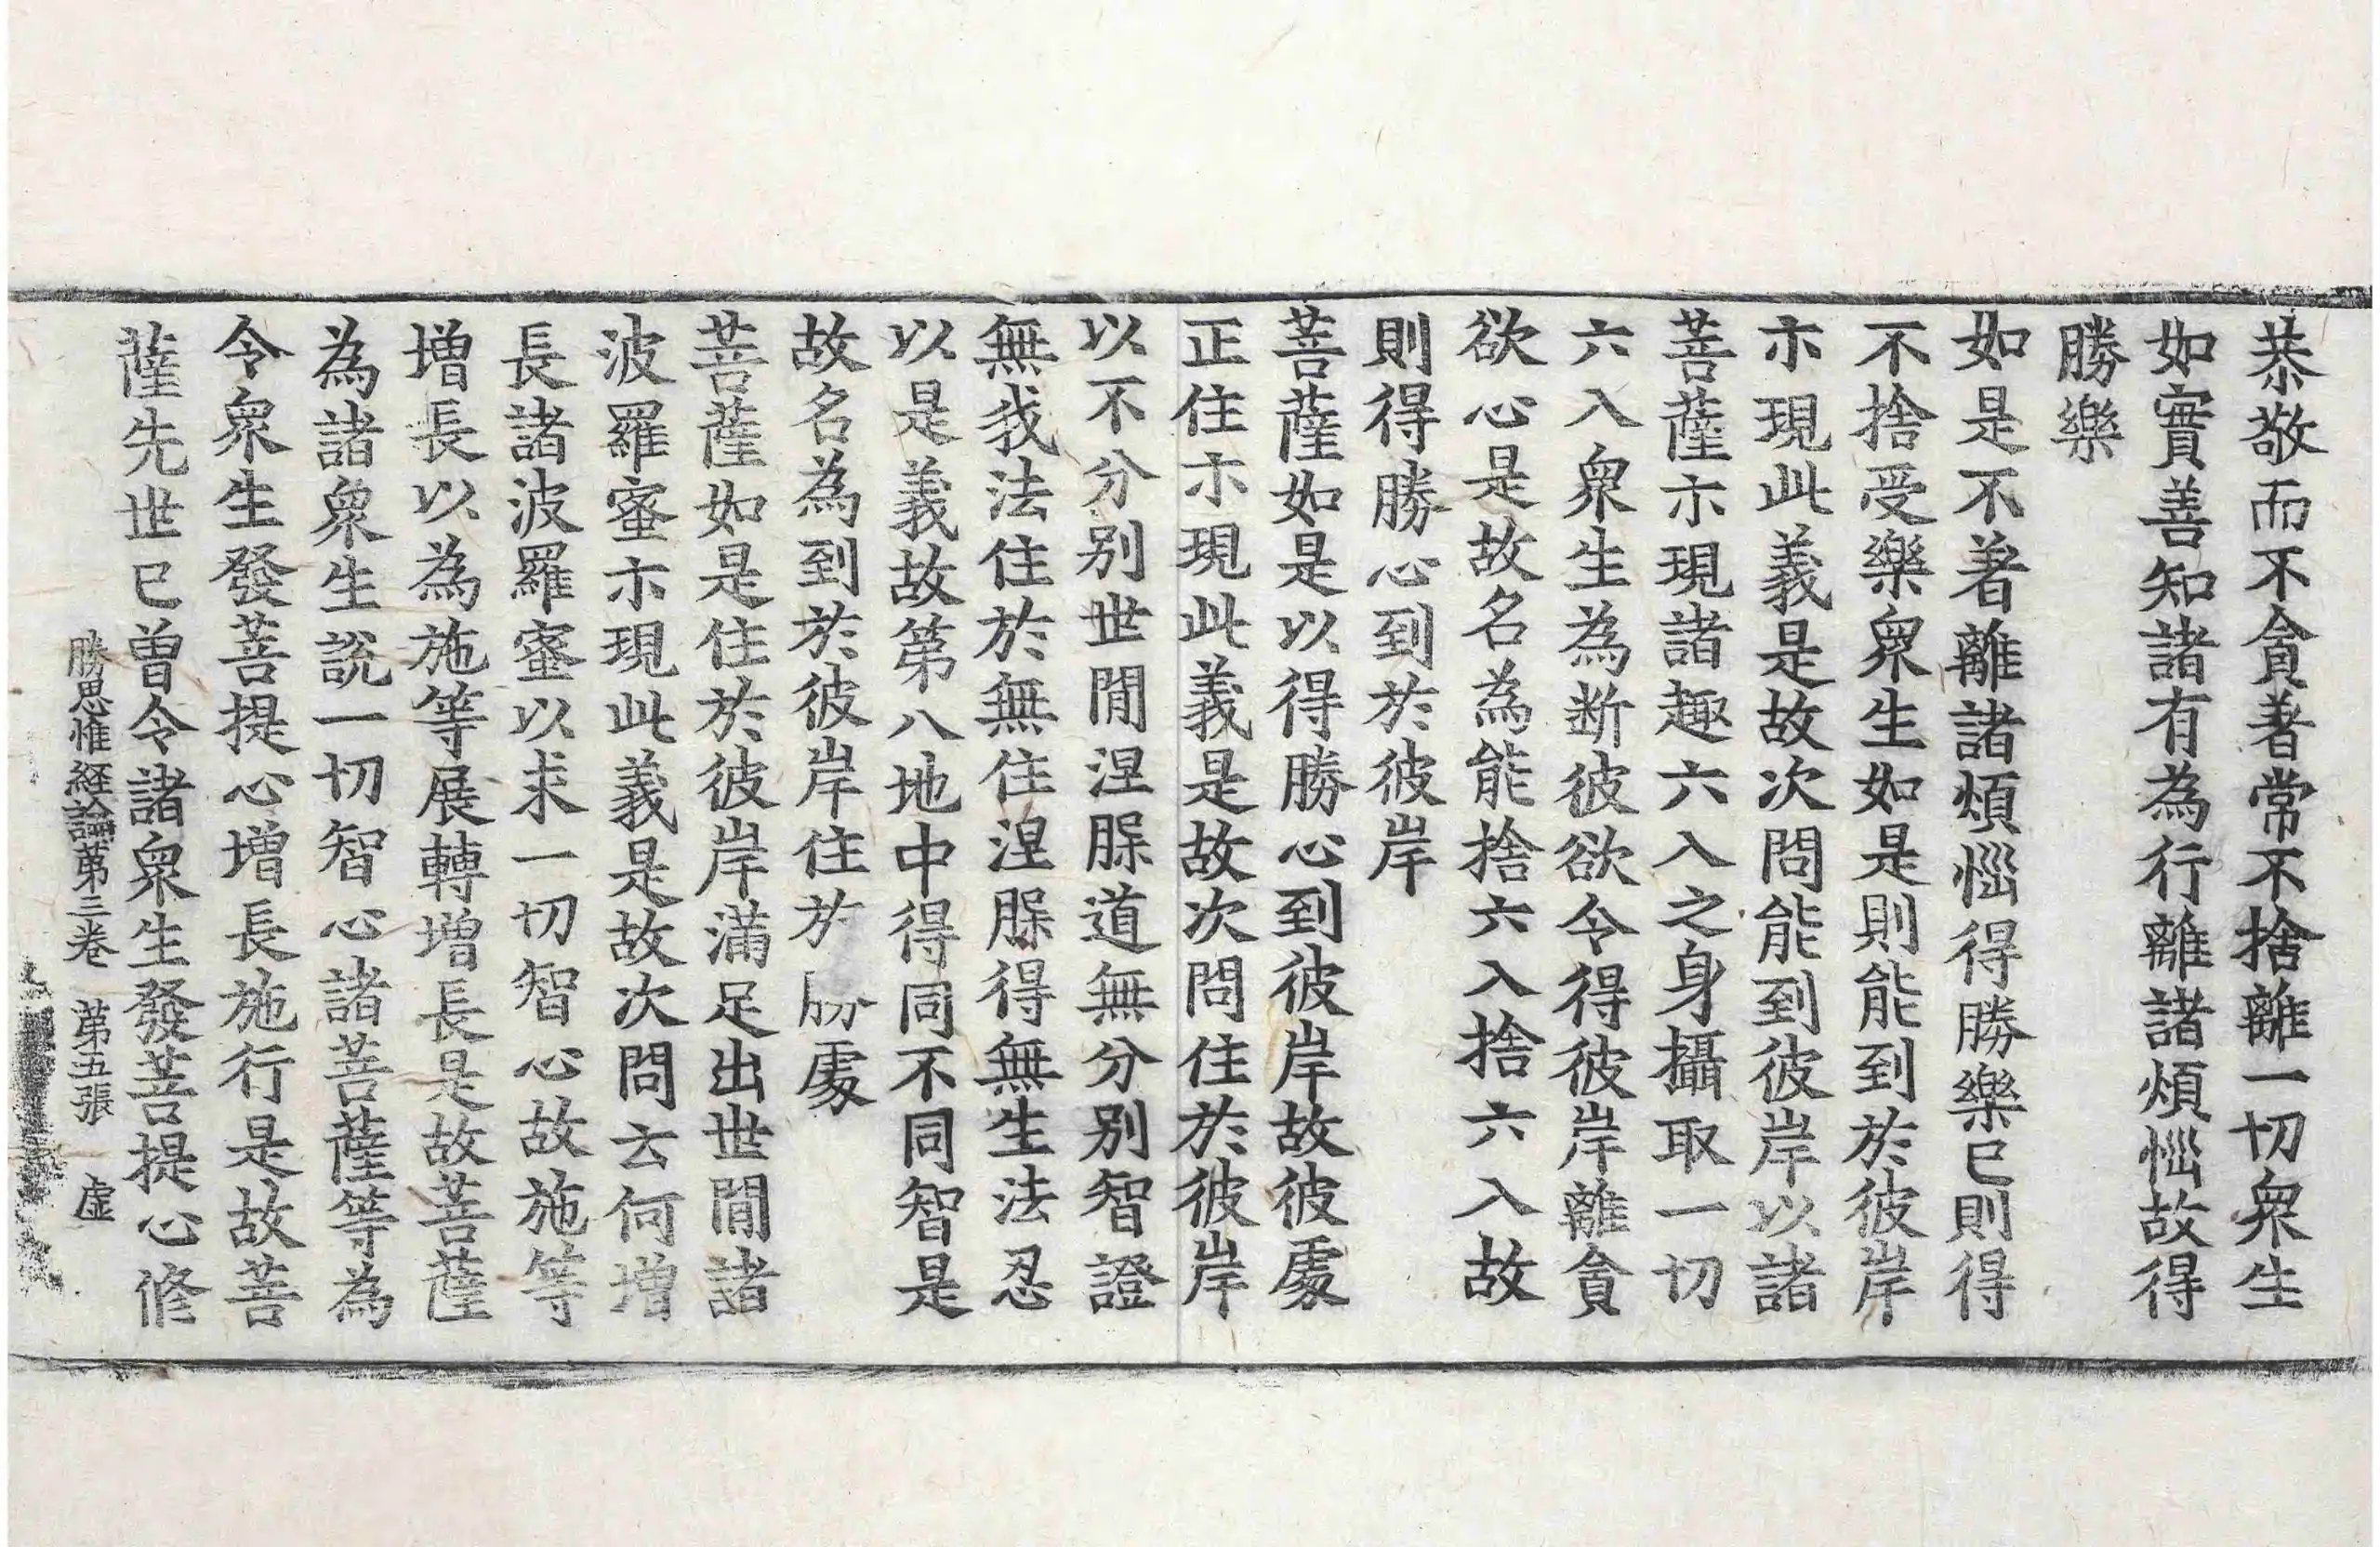 恭敬而不貪著常不捨離一切衆生
如實善知諸有為行離諸煩惱故得
勝樂
如是不著離諸煩惱得勝樂已則得
不捨受樂衆生如是則能到於彼岸
示現此義是故次問能到彼岸以諸
菩薩示現諸趣六入之身攝取一切
六入衆生為断彼欲令得彼岸離貪
欲心是故名為能捨六入捨六入故
則得勝心到於彼岸
菩薩如是以得勝心到彼岸故彼處
正住示現此義是故次問住於彼岸
以不分別世間涅槃道無分別智證
無我法住於無住涅槃得無生法忍
以是義故第八地中得同不同智是
故名為到於彼岸住於勝處
菩薩如是住於彼岸滿足出世間諸
波羅蜜示現此義是故次問云何增
長諸波羅蜜以求一切智心故施等
增長以為施等展轉增長是故菩薩
為諸衆生說一切智心諸菩薩等為
令衆生發菩提心增長施行是故菩
薩先世已曾令諸衆生發菩提心修
勝思惟経論第三卷 第五張 虛